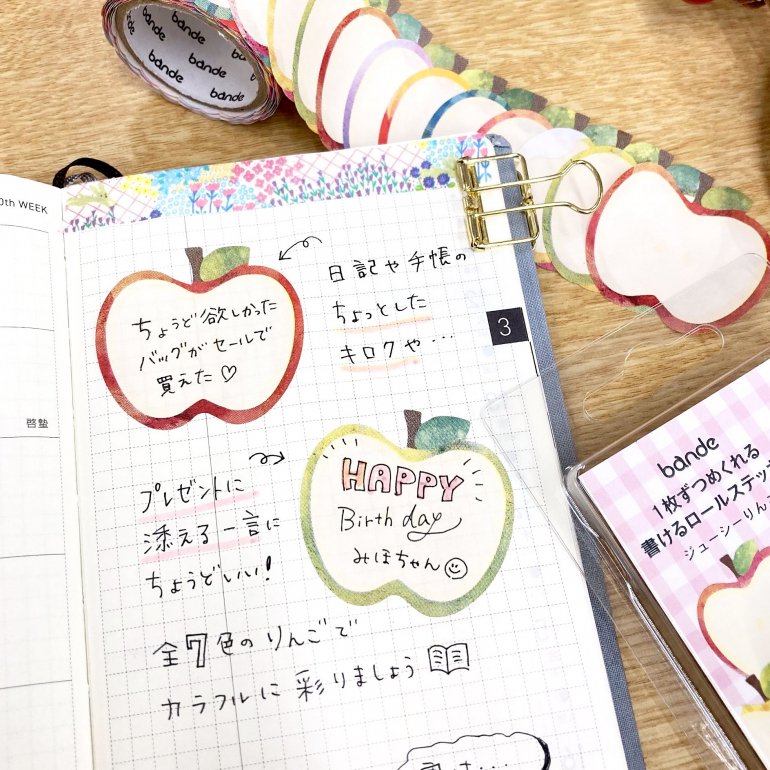 bande
bande
bande
bande
bande
0th WEEK
啓蟄
3
ちょうど欲しかった
バッグがセールで
買えた♡
日記や手帳の
ちょっとした
キロクや…
プレゼントに
添える一言に
ちょうどいい!
HAPPY
Birthday
みほちゃん
全7色のりんごで
カラフルに彩りましょう
bande
1枚ずつめくれる
書けるロールステッ
ジューシーりんご
bande